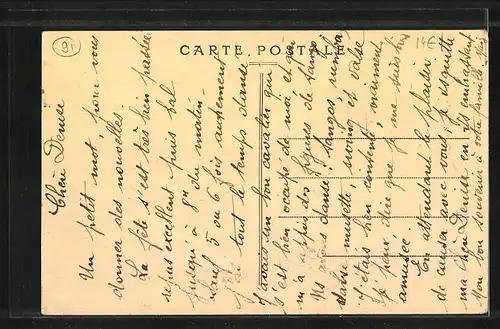 91
14E
CARTE POSTALE
Chère Denise
Un petit mot, pour vous
donner des nouvelles.
La fête s'est très bien passée
repas excellent puis bal
jusqu'à 8h du matin.
Sauf 5 ou 6 fois
j'ai tout le temps dansé
J'avais un bon cavalier qui
s'est bien occupé de moi et qui
m'a appris des figures de tango
Ns avons dansé : tangos, rumba
classe musette, swing et valse
J'étais bien contente, vraiment
je peux dire que je me suis bien
amusée.
En attendant le plaisir
de causer avec vous, je vs quitte
ma chère Denise en vs embrassant
Mon bon souvenir à votre famille.